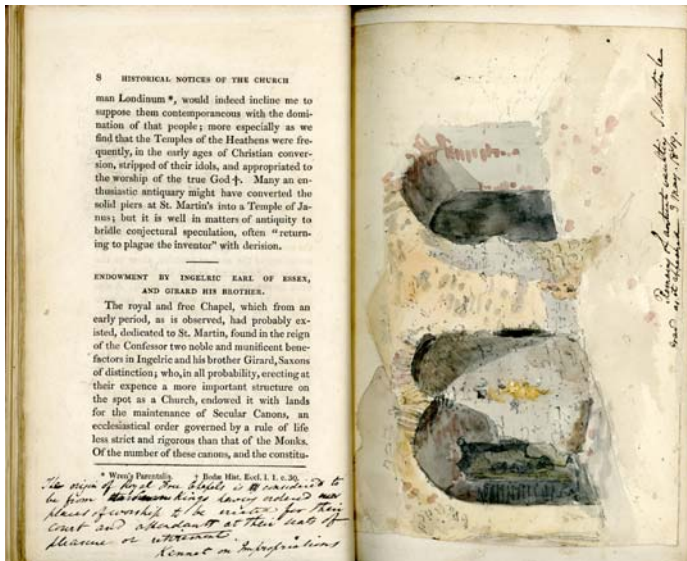 8 HISTORICAL NOTICES OF THE CHURCH
man Londinum *, would indeed incline me to
suppose them contemporaneous with the domi-
nation of that people; more especially as we
find that the Temples of the Heathens were fre-
quently, in the early ages of Christian conver-
sion, stripped of their idols, and appropriated to
the worship of the true God †. Many an en-
thusiastic antiquary might have converted the
solid piers at St. Martin's into a Temple of Ja-
nus; but it is well in matters of antiquity to
bridle conjectural speculation, often "return-
ing to plague the inventor" with derision.
ENDOWMENT BY INGELRIC EARL OF ESSEX,
AND GIRARD HIS BROTHER.
The royal and free Chapel, which from an
early period, as is observed, had probably ex-
isted, dedicated to St. Martin, found in the reign
of the Confessor two noble and munificent bene-
factors in Ingelric and his brother Girard, Saxons
of distinction; who, in all probability, erecting at
their expence a more important structure on
the spot as a Church, endowed it with lands
for the maintenance of Secular Canons, an
ecclesiastical order governed by a rule of life
less strict and rigorous than that of the Monks.
Of the number of these canons, and the constitu-
* Wren's Parentalia. † Bedæ Hist. Eccl. l. 1. c. 30.
The origin of Royal Free Chapels is considered to
be from kings having ordered
places of worship to be erected for their
court and attendants at their seats of
pleasure or retirement.
Kennet on Impropriations
Remains of ancient vaulting S. Martin le
Grand as it appeared 3 May. 1819.